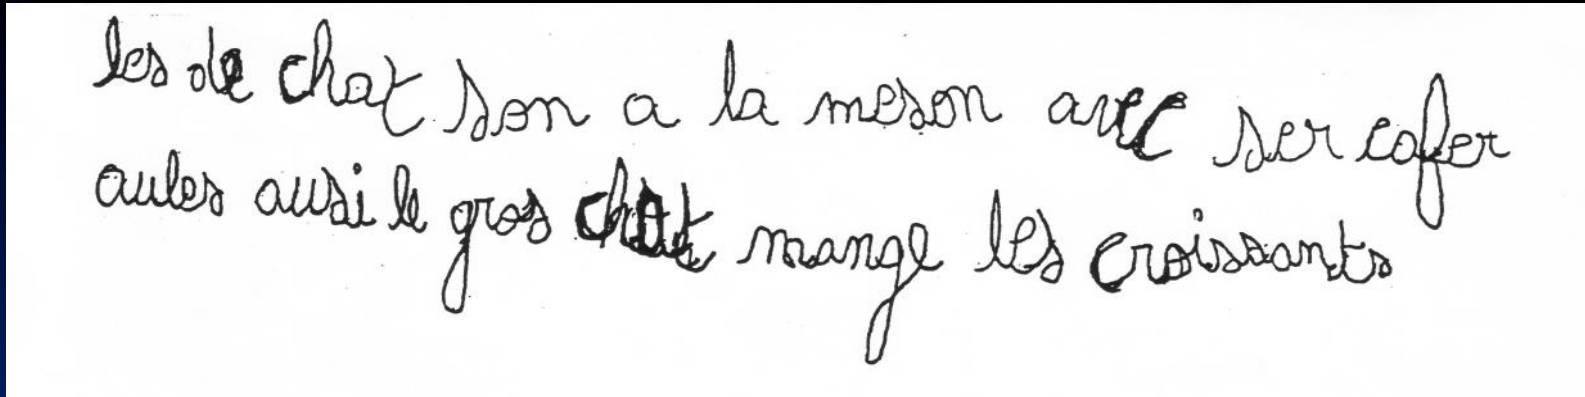 les de chat son a la meson avec ser cafer
aules ausi le gros chat mange les croissants